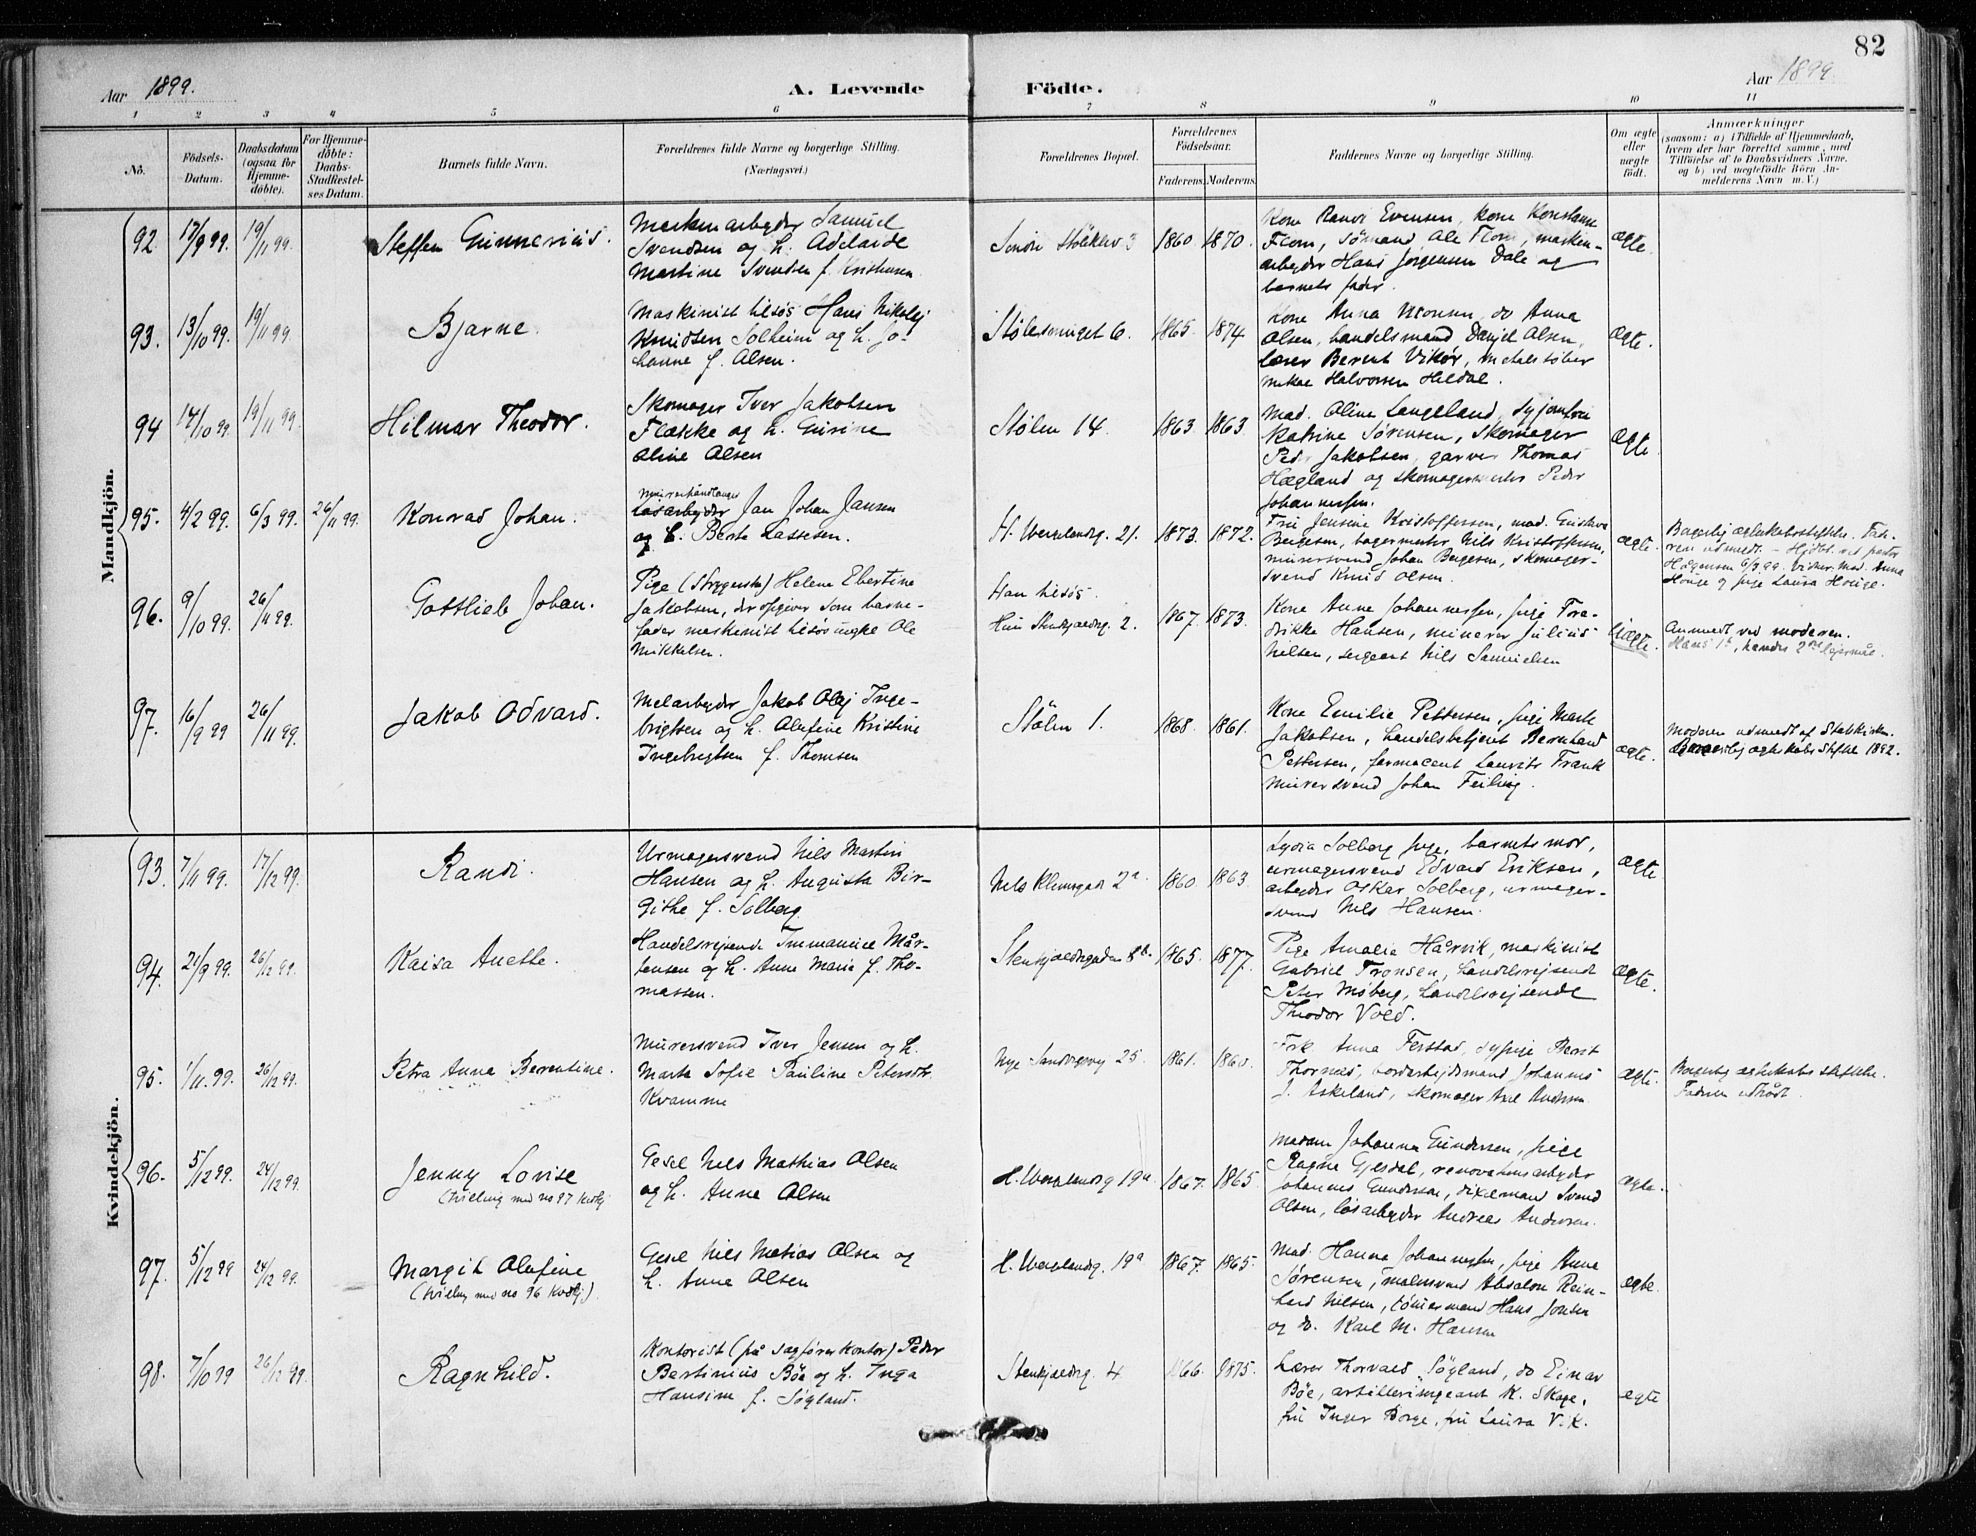 82
Aar 1899. A. Levende Födte. Aar 1899
1 2 3 4 5 6 7 8 9 10 11
No.
Födsels-
Datum.
Daabsdatum
(ogsaa for
Hjemme-
döbte).
For Hjemme-
döbte:
Daabs-
Stadfæstel-
ses Datum.
Barnets fulde Navn.
Forældrenes fulde Navne og borgerlige Stilling.
(Næringsvei.)
Forældrenes Bopæl.
Forældrenes
Födselsaar.
Faderens. Moderens.
Faddernes Navne og borgerlige Stilling.
Om ægte
eller
uægte
födt.
Anmærkninger
(saasom: a) i Tilfælde af Hjemmedaab,
hvem der har forrettet samme, med
Tilföielse af to Daabsvidners Navne,
og b) ved uægtefödte Börn An-
melderens Navn m. V.)
Mandkjön.
92 17/9 99. 19/11 99. Steffen Gunnerius.
Maskinarbeyder Samuel
Svendsen og h. Adelaide
Martine Svendsen f. Kristensen
1860. 1870.
Kone Evensen, kone
Flom, sømand Ole Flom, maskin-
arbeyder Hans Jørgensen Dale og
barnets fader.
ægte.
93. 13/10 99. 19/11 99. Bjarne.
Maskinist tilsøs Hans Nikolej
Knudsen Solheim og h. Jo-
hanne f. Olsen.
6. 1865. 1874
Kone Anna do Anna
Olsen, handelsmand Olsen,
lærer Berent Vikør,
Halvorsen Hildal.
ægte.
94 14/10 99 19/11 99. Hilmar Theodor.
Skomager Iver Jakobsen
Flaske og h. Gurine
Oline Olsen
Stølen 14. 1863. 1863
Mad. Oline Langeland, syjomfru
Katrine Sørensen, skomager
Peder Jakobsen, garver Thomas
Hægland og skomagermester Peder
Johannessen.
ægte
95. 4/2 99. 6/3 99. 26/11 99. Konrad Johan.
murerhåndlanger
Løsarbeyder Jan Johan Jansen
og h. Berte Lassesen.
H. Wergelandsg. 21. 1873. 1872.
Fru Jensine Kristoffersen, mad. Gustava
Bergesen, bagermester Nils Kristoffersen,
murersvend Johan Bergesen, skomager-
svend Knud Olsen.
ægte.
Borgerlig ægteskabsstiftelse. Fad-
eren udmeldt. - Hjdbt. ved pastor
6/3 99. Vidner: Mad. Anna
Houge og pige Laura Houge.
96. 9/10 99. 26/11 99. Gottlieb Johan.
Pige (strygerske) Helene Ebertine
Jakobsen, der opgiver som barne-
fader maskinist tilsøs ungke Ole
Mikkelsen.
Han tilsøs.
Hun Stenkjældrg. 2. 1867. 1873.
Kone Anne Johannessen, pige Fre-
drikke Hansen, minerer Julius
Nelsen, sergeant Nils Samuelsen
Uægte.
Anmeldt ved moderen.
Hans 1ste, hendes 2det lejermål.
97. 16/9 99 26/11 99. Jakob Odvard.
Melarbeyder Jakob Olaj Inge-
brigtsen og h. Olufine Kristine
Ingebrigtsen f. Thomsen
Stølen 1. 1868. 1861.
Kone Emilie Pettersen, pige Marte
Jakobsen, handelsbetjent Bernhard
Pettersen, farmaceut Laurits Frank
murersvend Johan Feiling.
ægte.
Moderen udmeldt af Statskirken.
Borgerlig ægteskabsstiftelse 1892.
Kvindekjön.
93. 7/11 99. 17/12 99. Randi.
Urmagersvend Nils Martin
Hansen og h. Augusta Bir-
githe f. Solberg
Nils Klimsgade 2a. 1860. 1863.
Lydia Solberg pige, barnets mor,
urmagersvend Edvard Eriksen,
arbeyder Oskar Solberg, urmager-
svend Nils Hansen.
ægte
94. 21/9 99. 26/12 99. Kaisa Anette.
Handelsrejsende Immanuel Mår-
tensen og h. Anne Marie f. Tho-
massen.
Stenkjældrgaden 8b. 1865. 1877.
Pige Amalia Hårvik, maskinist
Gabriel Tronsen, handelsrejsende
Peter Moberg, handelsrejsende
Theodor Vold.
ægte.
95. 1/11 99. 26/12 99. Petra Anna Berentine.
Murersvend Iver Jensen og h.
Marta Sofie Pauline Petersdtr.
Kvamme
Nye Sandvigsvej 25. 1861. 1860.
Frk Anna Ferstad, sypige Berit
Thornæs, bordarbejdsmand Johannes
J. Askeland, skomager Axel Andersen
ægte.
Borgerlig ægteskabsstiftelse.
Faderen udtrådt.
96. 5/12 99. 24/12 99. Jenny Lovise
(tvilling med no 97 kvkj)
Gesel Nils Mathias Olsen
og h. Anne Olsen
H. Wergelandsg 19a 1867. 1865.
Madam Johanna Gundersen, pige
Ragna Gjesdal, renovationsarbeyder
Johannes Gundersen, Svend
Olsen, løsarbeyder Andreas Andersen.
ægte.
97. 5/12 99 24/12 99. Margit Olufine
(tvilling med no 96 kvkj.)
Gesel Nils Matias Olsen og
h. Anne Olsen
H. Wergelandsg. 19a 1867. 1865.
Mad. Hanna Johannessen, pige Anna
Sørensen, malersvend Absalon Rein-
hard Nilsen, tømmermand Hans Jonsen
og do. Karl M. Hansen
ægte.
98. 7/10 99 26/12 99. Ragnhild.
Kontorist (på sagførerkontor) Peder
Bertinius Böe og h. Inga
Hansine f. Søyland.
Stenkjældrg. 4 1866. 1875.
Lærer Thorvald Søyland, do Einar
Böe, artillerisergeant K. Skage,
fru Inger Borge, fru Laura V. K.
ægte